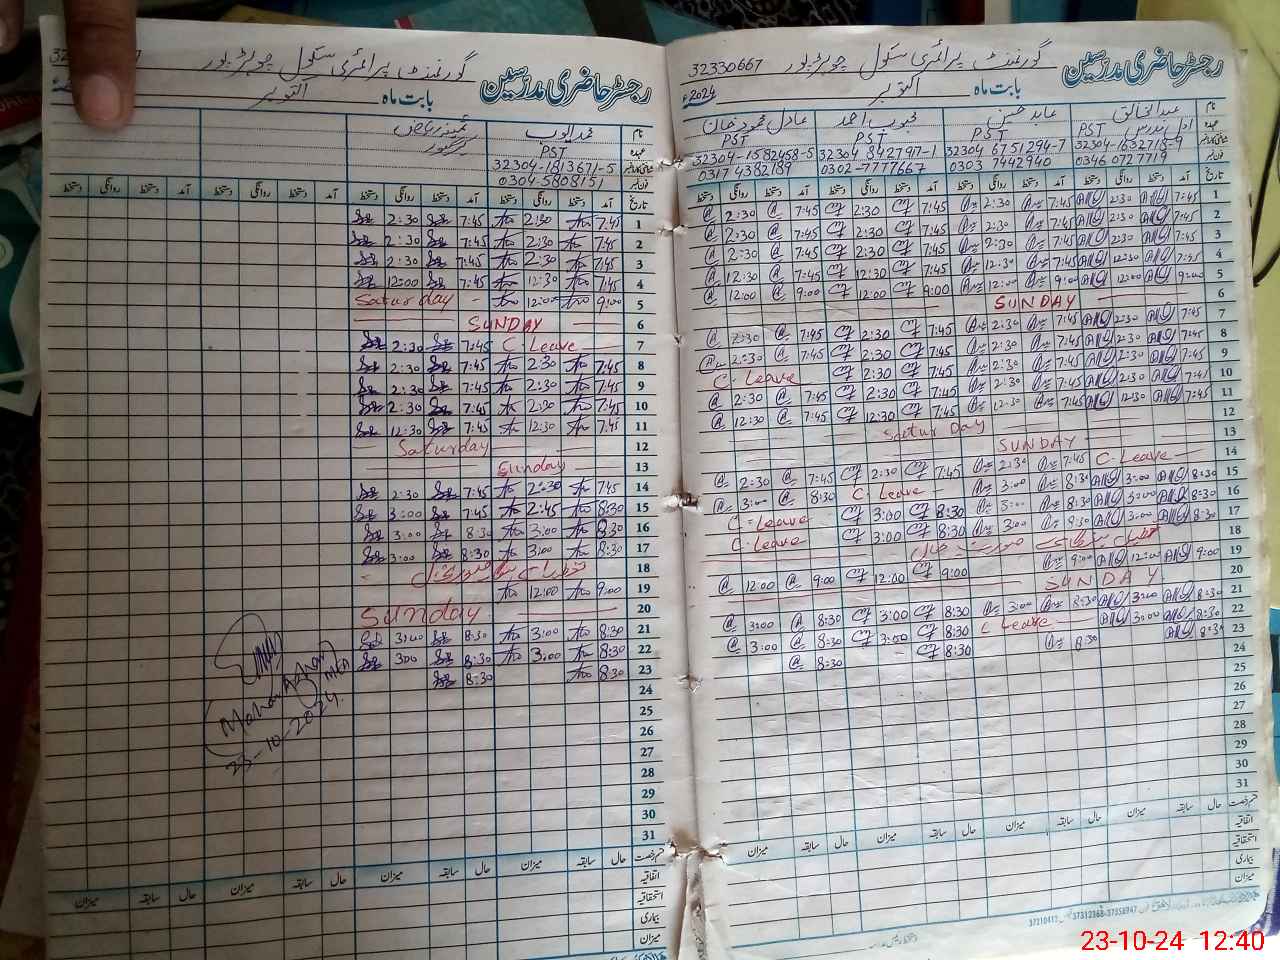 رجسٹر حاضری مدرسین
گورنمنٹ پرائمری سکول
32330667
بابت ماہ اکتوبر 2024ء
نام عبدالخالق عابد حسین محبوب احمد عادل محمود خان
عہدہ PST PST PST PST
32304-1632718-9 32304 6751294-7 32304 842797-1 32304-1582458-5
0346 0727719 0303 7442940 0302-7777667 0317 4382189
تاریخ آمد دستخط روانگی دستخط آمد دستخط روانگی دستخط آمد دستخط روانگی دستخط آمد دستخط روانگی دستخط
1 7:45 2:30 7:45 2:30 7:45 2:30 7:45 2:30
2 7:45 2:30 7:45 2:30 7:45 2:30 7:45 2:30
3 7:45 2:30 7:45 2:30 7:45 2:30 7:45 2:30
4 7:45 12:30 7:45 12:30 7:45 12:30 7:45 12:30
5 9:00 12:00 9:00 12:00 9:00 12:00 9:00 12:00
6 SUNDAY
7 7:45 2:30 7:45 2:30 7:45 2:30 7:45 2:30
8 7:45 2:30 7:45 2:30 7:45 2:30 7:45 2:30
9 7:45 2:30 7:45 2:30 7:45 2:30 C. Leave
10 7:45 2:30 7:45 2:30 7:45 2:30 7:45 2:30
11 7:45 12:30 7:45 12:30 7:45 12:30 7:45 12:30
12 Satur Day
13 SUNDAY
14 C. Leave 7:45 2:30 7:45 2:30 7:45 2:30
15 8:30 3:00 8:30 3:00 C. Leave 8:30 3:00
16 8:30 3:00 8:30 3:00 8:30 3:00 C. Leave
17 8:30 3:00 8:30 3:00 8:30 3:00 C. Leave
18
19 9:00 12:00 9:00 9:00 12:00 9:00 12:00
20 SUNDAY
21 8:30 3:00 8:30 3:00 8:30 3:00 8:30 3:00
22 8:30 3:00 C Leave 8:30 3:00 8:30 3:00
23 8:30 8:30 8:30 8:30
24
25
26
27
28
29
30
31
قسم رخصت حال سابقہ میزان حال سابقہ میزان حال سابقہ میزان حال سابقہ میزان
اتفاقیہ
استحقاقیہ
بیماری
میزان
37210412
رجسٹر حاضری مدرسین
گورنمنٹ پرائمری سکول
بابت ماہ اکتوبر
نام محمد ایوب
عہدہ PST
32304-1813671-5
0304-5808151
تاریخ آمد دستخط روانگی دستخط آمد دستخط روانگی دستخط آمد دستخط روانگی دستخط آمد دستخط روانگی دستخط
1 7:45 2:30 7:45 2:30
2 7:45 2:30 7:45 2:30
3 7:45 2:30 7:45 2:30
4 7:45 12:30 7:45 12:00
5 9:00 12:00 Saturday
6 SUNDAY
7 C Leave 7:45 2:30
8 7:45 2:30 7:45 2:30
9 7:45 2:30 7:45 2:30
10 7:45 2:30 7:45 2:30
11 7:45 12:30 7:45 12:30
12 Saturday
13 Sunday
14 7:45 2:30 7:45 2:30
15 8:30 2:45 7:45 3:00
16 8:30 3:00 8:30 3:00
17 8:30 3:00 8:30 3:00
18
19 9:00 12:00
20 Sunday
21 8:30 3:00 8:30 3:00
22 8:30 3:00 8:30 3:00
23 8:30 8:30
24
25
26
27
28
29
30
31
23-10-2024
قسم رخصت حال سابقہ میزان حال سابقہ میزان حال سابقہ میزان حال سابقہ میزان
اتفاقیہ
استحقاقیہ
بیماری
میزان
23-10-24 12:40